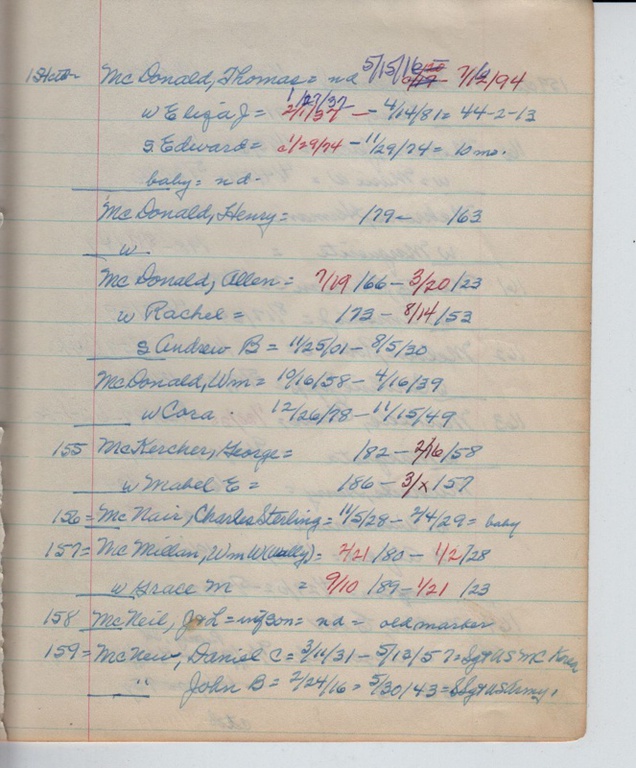 McDonald, Thomas = nd 5/15/16 7/12/94
w Eliza J = 2/1/37 1/27/37 - 4/14/81 = 44-2-13
s Edward = 1/29/74 - 11/29/74 = 10 mo.
baby = nd -
McDonald, Henry = 179- 163
w
McDonald, Allen = 7/19/66 - 3/20/23
w Rachel = 173 - 8/14/53
s Andrew B = 11/25/01 - 8/5/30
McDonald, Wm = 10/16/58 - 4/16/39
w Cora . 12/26/78 - 11/15/49
155 McKercher, George = 182 - 2/16/58
w Mabel E = 186 - 3/x 157
156 = McNair, Charles Sterling = 11/5/28 - 2/4/29 = baby
157 = McMillan, Wm W (Wally) = 2/21/80 - 1/2/28
w Grace M = 9/10/89 - 1/21/23
158 McNeil, = nd = old marker
159 = McNew, Daniel C = 3/11/31 - 5/13/57 = Sgt US MC Korea
" John B = 2/24/16 = 5/30/43 = SSgt US Army.